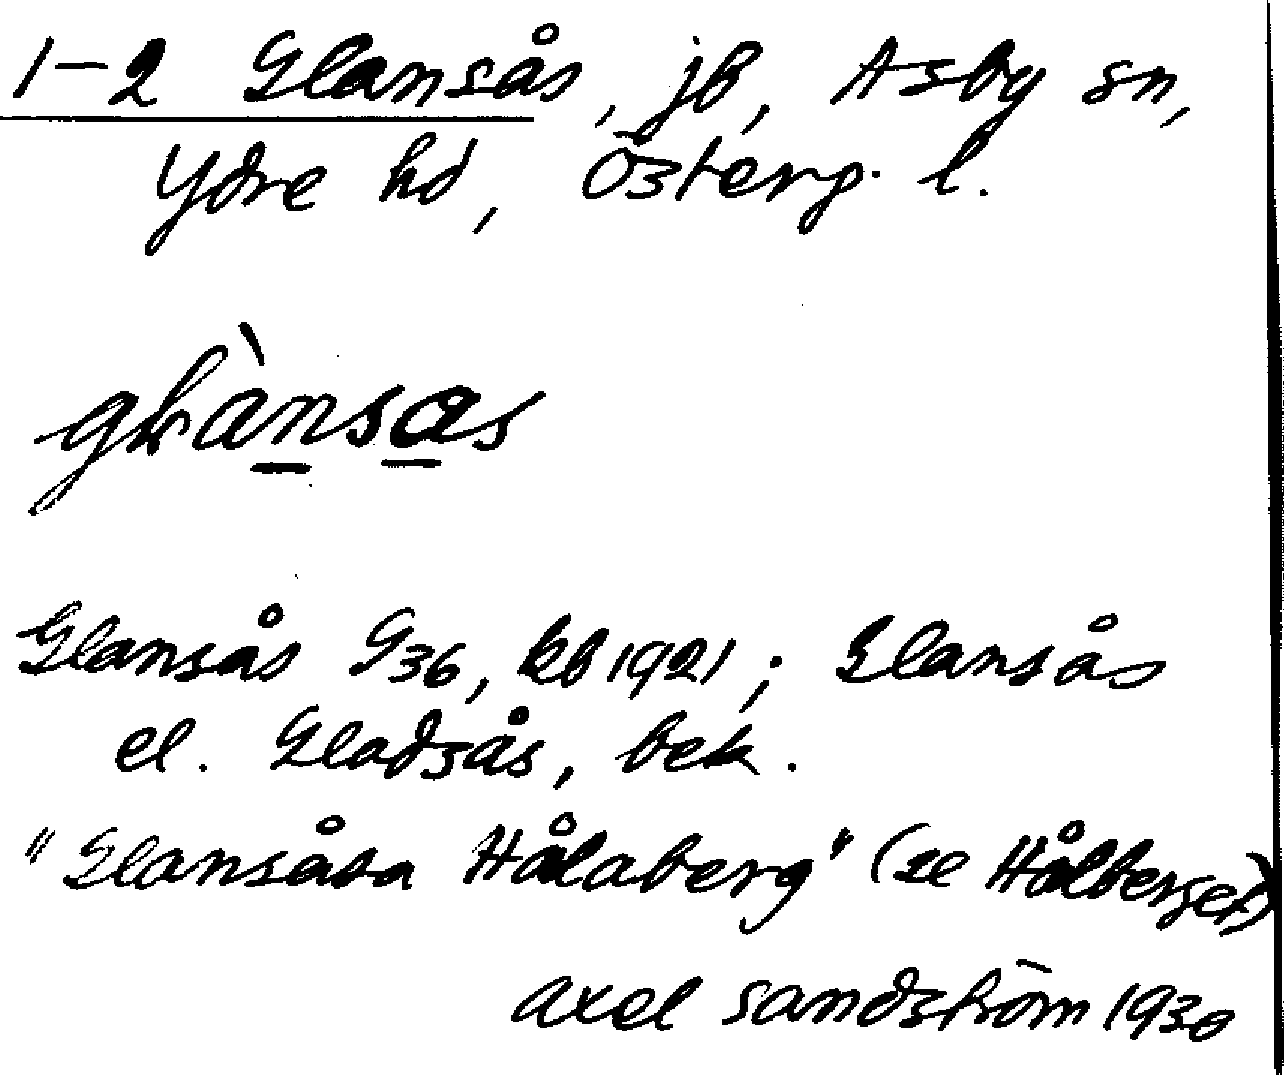 1-2 Glansås, jb, Asby sn,
Ydre hd, Österg. l.
Glansås G36, kb 1921; Glansås
el. Gladsås, bek.
"Glansåsa Hålaberg" (se Hålberget)
Axel Sandström 1930